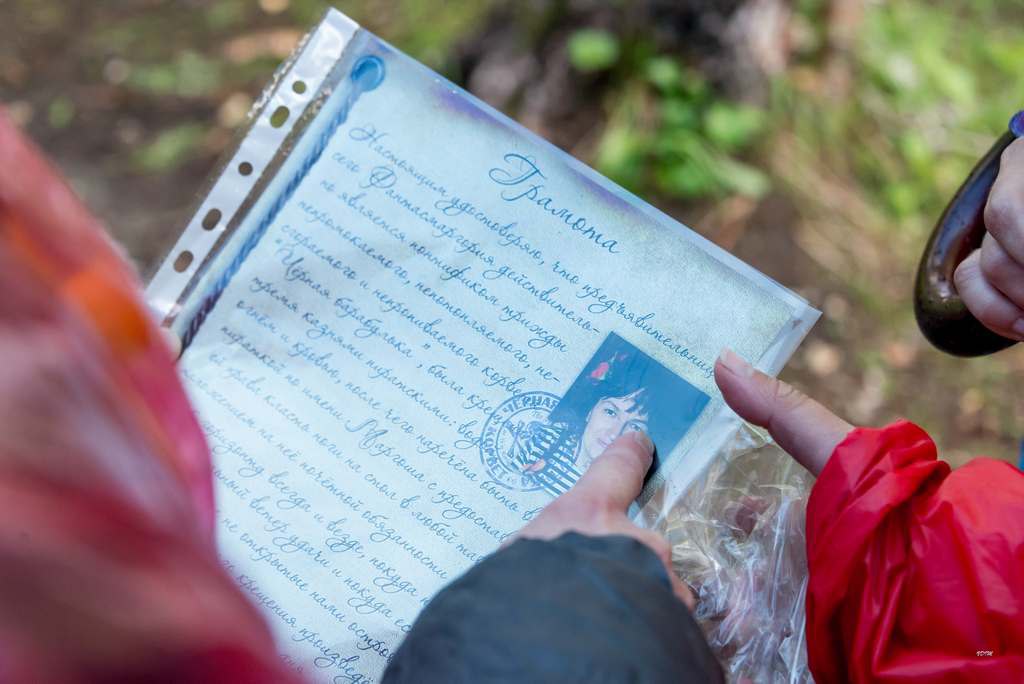 Грамота
Настоящим удостоверяю, что предъявительница
сего Фантасмаргория действитель-
но является понтификом трижды
непромокаемого, непотопляемого, не-
сгораемого и непропиваемого корве
"Чёрная барабулка", была крещ
тремя казнями пиратскими: вод
огнём и кровью, после чего наречена быть
пираткой по имени Маргоша с предостав
ей права класть ноги на стол в любой тав
ложением на неё почётной обязанности
везде, покуда
ный ветер удачи и покуда ес
не открытые нами остро
крещения произведё
ЧЕРНАЯ